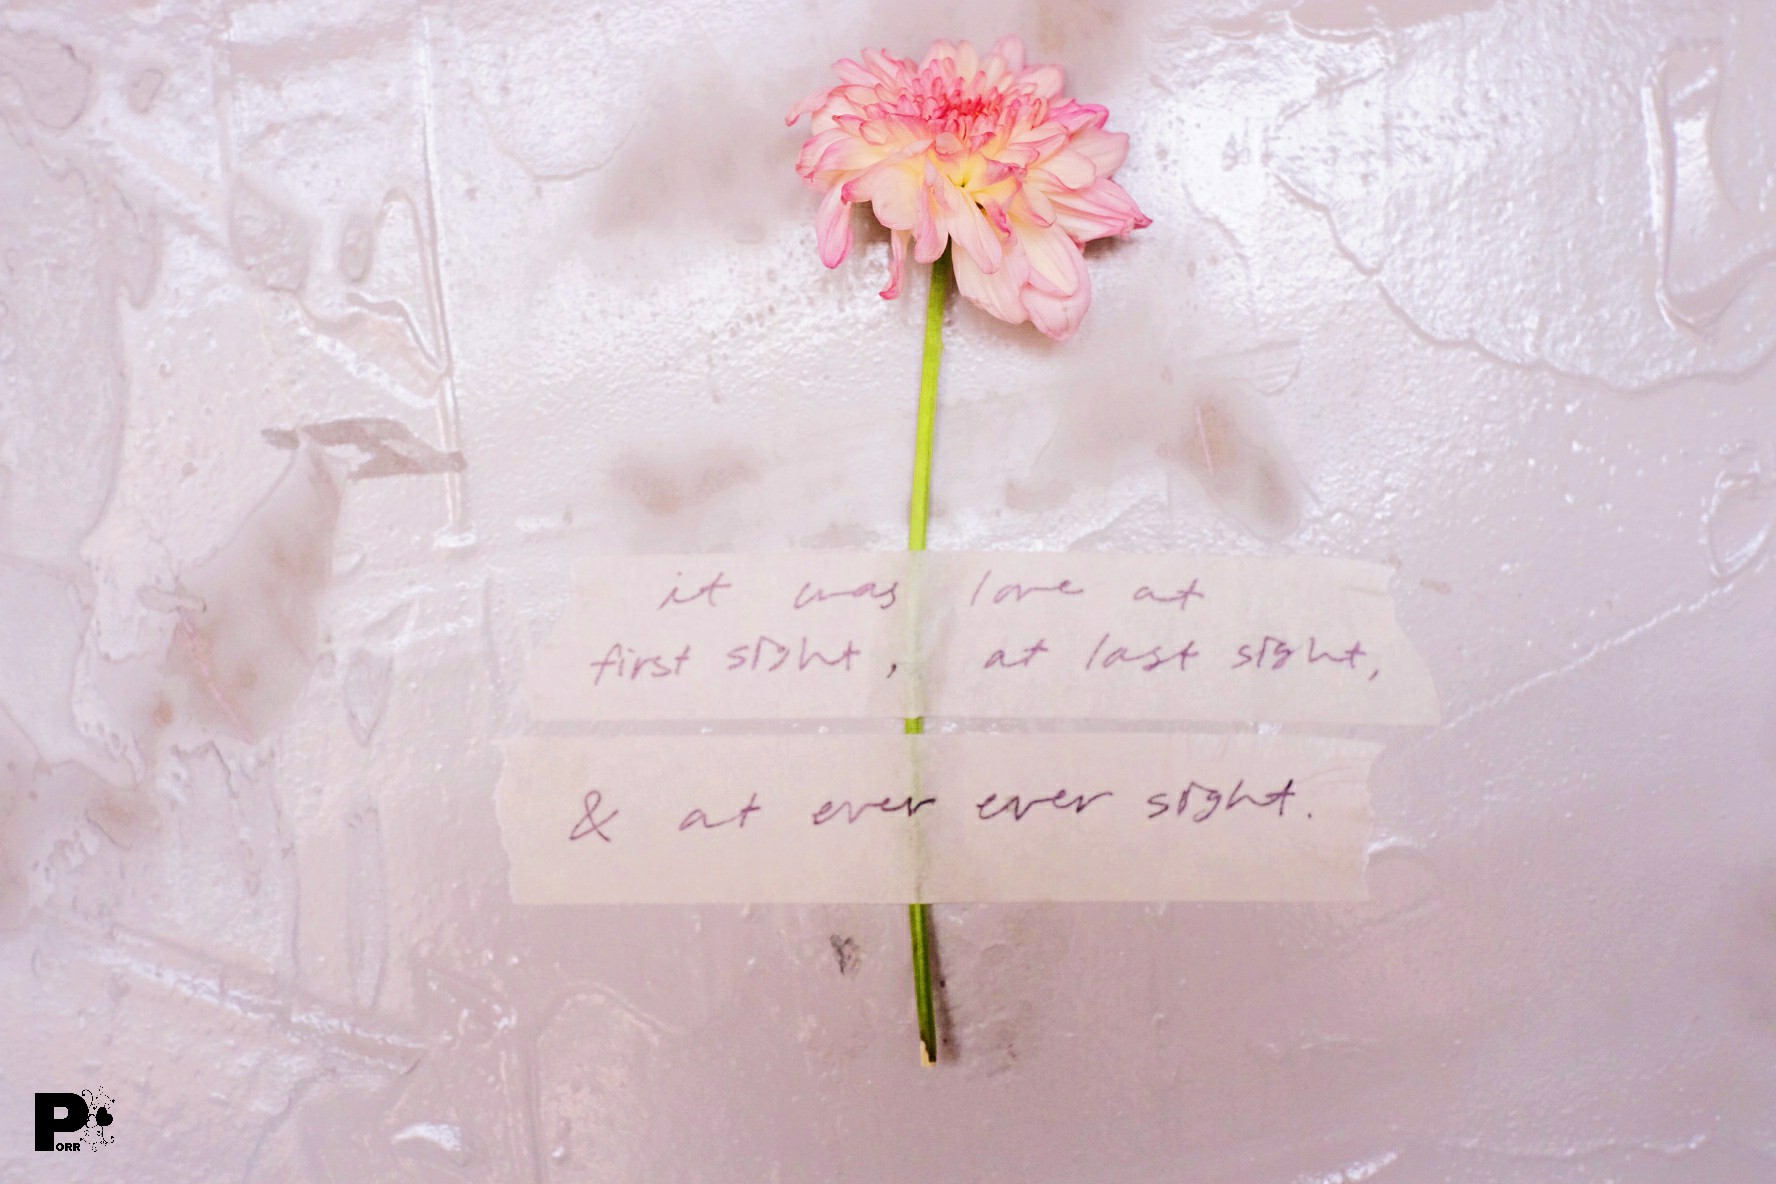 it was love at
first sight, at last sight,
& at ever ever sight.
PORR